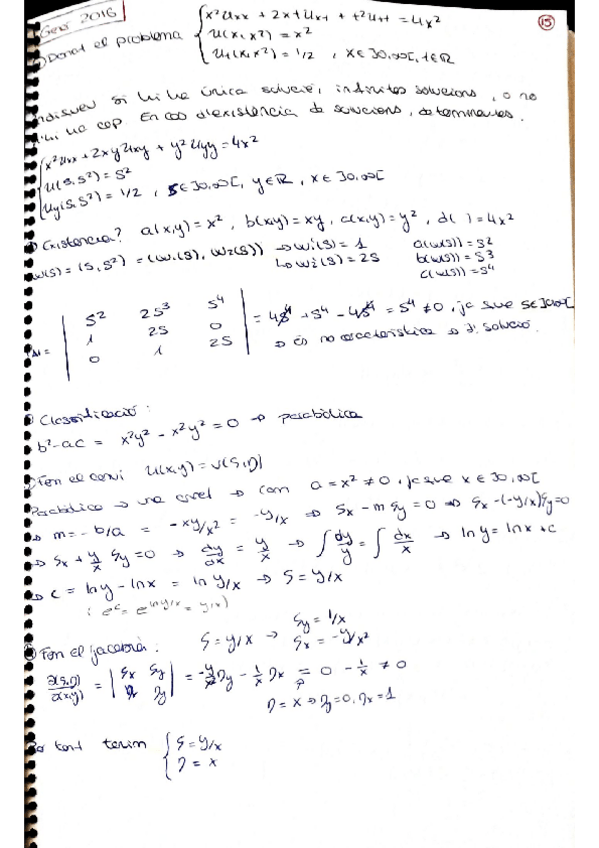 Gener 2016
15
① Donat el problema { x²Uxx + 2xtUxt + t²Utt = 4x²
u(x,x²) = x²
Ut(x,x²) = 1/2 , x∈]0,∞[, t∈ℝ
Indiqueu si hi ha única solució, infinites solucions, o no
n'hi ha cap. En cas d'existència de solucions, determineu-les.
{ x²Uxx + 2xyUxy + y²Uyy = 4x²
u(s,s²) = s²
Uy(s,s²) = 1/2 , s∈]0,∞[, y∈ℝ, x∈]0,∞[
Existència? a(x,y) = x², b(x,y) = xy, c(x,y) = y², d( ) = 4x²
w(s) = (s,s²) = (w₁(s), w₂(s)) → w₁'(s) = 1 a(w(s)) = s²
↳ w₂'(s) = 2s b(w(s)) = s³
c(w(s)) = s⁴
Δ = | s² 2s³ s⁴
1 2s 0
0 1 2s | = 4s⁴ + s⁴ - 4s⁴ = s⁴ ≠ 0, ja que s∈]0,∞[
⇒ és no característica ⇒ ∃! solució.
Classificació:
b²-ac = x²y² - x²y² = 0 → parabòlica
Fem el canvi u(x,y) = v(ξ,η)
Parabòlica → una arrel → com a = x² ≠ 0, ja que x∈]0,∞[
⇒ m = -b/a = -xy/x² = -y/x ⇒ ξx - mξy = 0 ⇒ ξx-(-y/x)ξy=0
⇒ ξx + y/x ξy = 0 ⇒ dy/dx = y/x → ∫dy/y = ∫dx/x → ln y = ln x + c
⇒ c = ln y - ln x = ln y/x → ξ = y/x
(e^c = e^(ln y/x) = y/x)
Fem el jacobià: ξ = y/x → ξy = 1/x
ξx = -y/x²
∂(ξ,η)/∂(x,y) = | ξx ξy
ηx ηy | = -y/x² ηy - 1/x ηx = 0 - 1/x ≠ 0
η = x ⇒ ηy = 0, ηx = 1
Per tant tenim { ξ = y/x
η = x